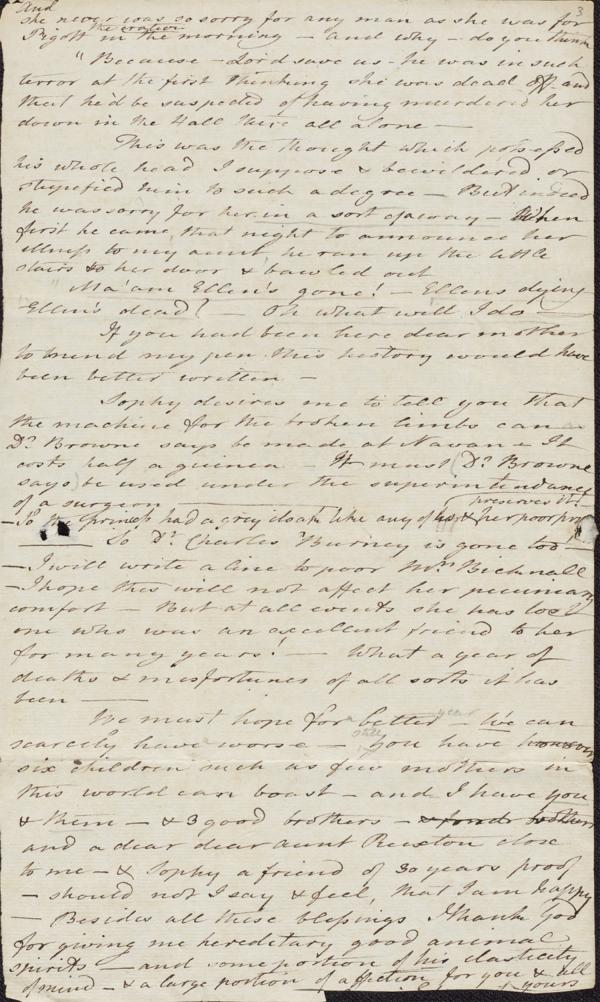 3
And
she never was so sorry for any man as she was for
Pigott the narration in the morning – and why – do you think
"Because – Lord save us – he was in such
terror at the first thinking she was dead off and
that he'd be suspected of having murdered her
down in the Hall there all alone –
This was the thought which possessed
his whole head I suppose & bewildered or
stupefied him to such a degree – But indeed
he was sorry for her in a sort of a way – When
first he came that night to announce her
illness to my aunt he ran up the little
stairs to her door & bawled out
"Ma'am Ellen's gone! – Ellens dying
Ellen's dead! – Oh what will I do –
If you had been here dear mother
to mend my pen this history would have
been better written –
Sophy desires me to tell you that
the machine for the broken limbs can
Dr. Browne says be made at Navan It
costs half a guinea – It must (Dr. Browne
says) be used under the superintendance
of a surgeon
preserves it!
– So the Princess had a grey cloak like any of us & her poor
So Dr. Charles Burney is gone too –
– I will write a line to poor Mrs. Bicknall
– I hope this will not affect her pecuniary
comfort – But at all events she has lost
one who was an excellent friend to her
for many years! – What a year of
deaths & misfortunes of all sorts it has
been –
We must hope for a better year – We can
scarcely have worse – you have still
six children such as few mothers in
this world can boast – and I have you
& them – & 3 good brothers – & fond brothers
and a dear dear aunt Ruxton close
to me – & Sophy a friend of 30 years proof
– should not I say & feel, that I am happy
– Besides all these blessings I thank God
for giving me hereditary good animal
spirits – and some portion of his elasticity
of mind – & a large portion of affection for you & all
yours